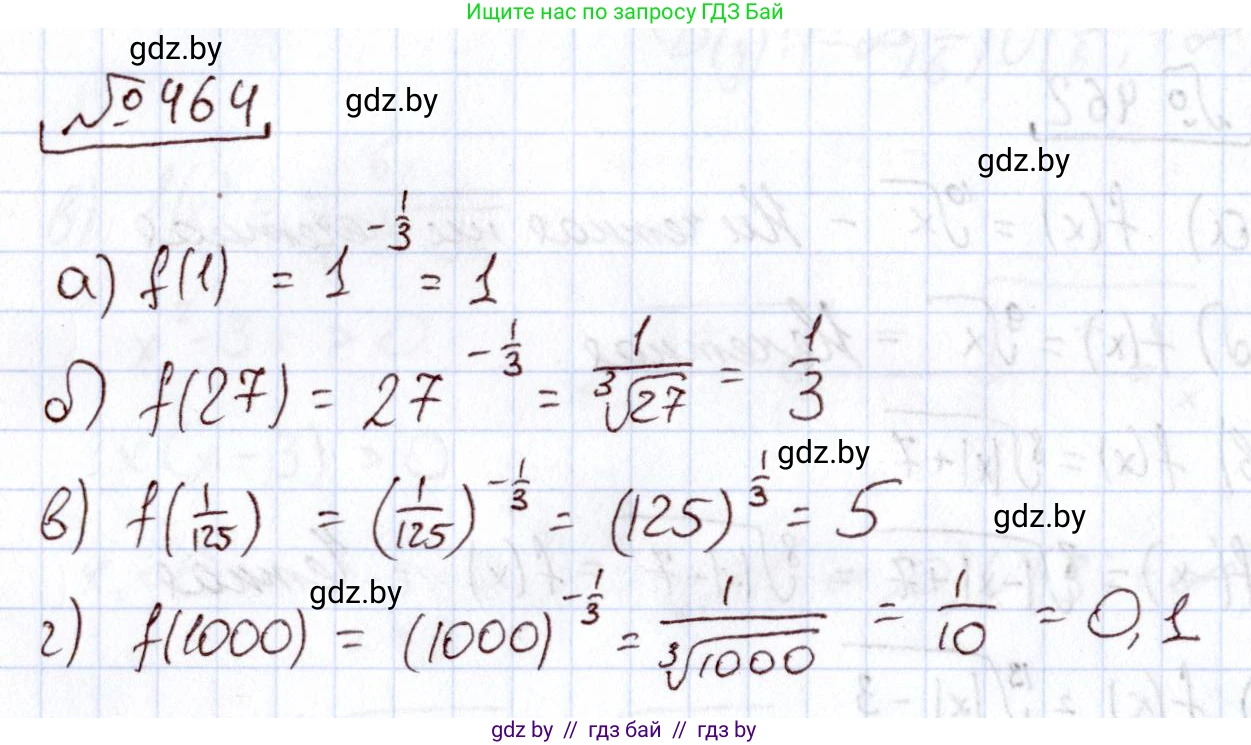 Ищите нас по запросу ГДЗ Бай
gdz.by
№ 464
gdz.by
gdz.by
а) f(1) = 1^(-1/3) = 1
б) f(27) = 27^(-1/3) = 1/∛27 = 1/3
gdz.by
в) f(1/125) = (1/125)^(-1/3) = (125)^(1/3) = 5
gdz.by
gdz.by
г) f(1000) = (1000)^(-1/3) = 1/∛1000 = 1/10 = 0,1
gdz.by // гдз бай // гдз by